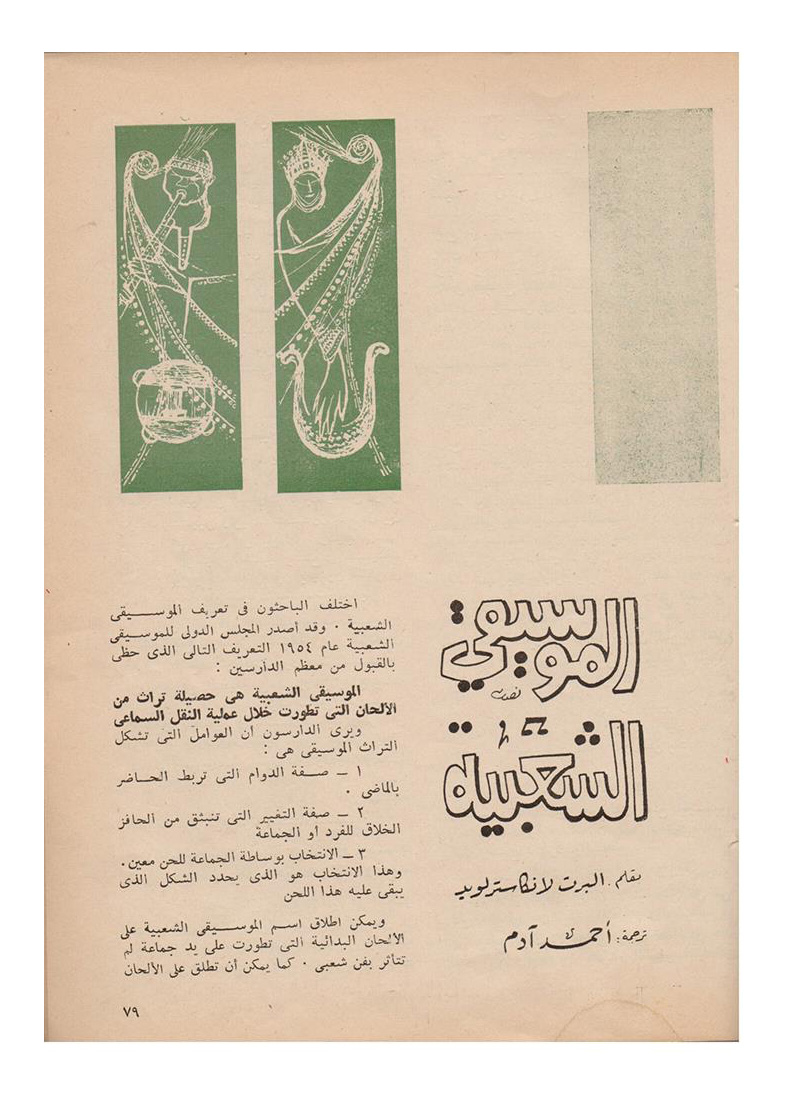 الموسيقى
الشعبية
بقلم: البرت لانكاسترلويد
ترجمة: أحمد آدم
اختلف الباحثون فى تعريف الموسـيقى
الشعبية ٠ وقد أصدر المجلس الدولى للموسـيقى
الشعبية عام ١٩٥٤ التعريف التالى الذى حظى
بالقبول من معظم الدارسين :
الموسيقى الشعبية هى حصيلة تراث من
الألحان التى تطورت خلال عملية النقل السماعى
ويرى الدارسون ان العوامل التى تشكل
التراث الموسيقى هى :
١ ــ صـفة الدوام التى تربط الحـاضر
بالماضى ٠
٢ ــ صفة التغيير التى تنبثق من الحافز
الخلاق للفرد أو الجماعة
٣ ــ الانتخاب بوساطة الجماعة للحن معين٠
وهذا الانتخاب هو الذى يحدد الشكل الذى
يبقى عليه هذا اللحن
ويمكن اطلاق اسـم الموسـيقى الشعبية على
الألحان البدائية التى تطورت على يد جماعة لم
تتأثر بفن شعبى ٠ كما يمكن أن تطلق على الألحان
٧٩